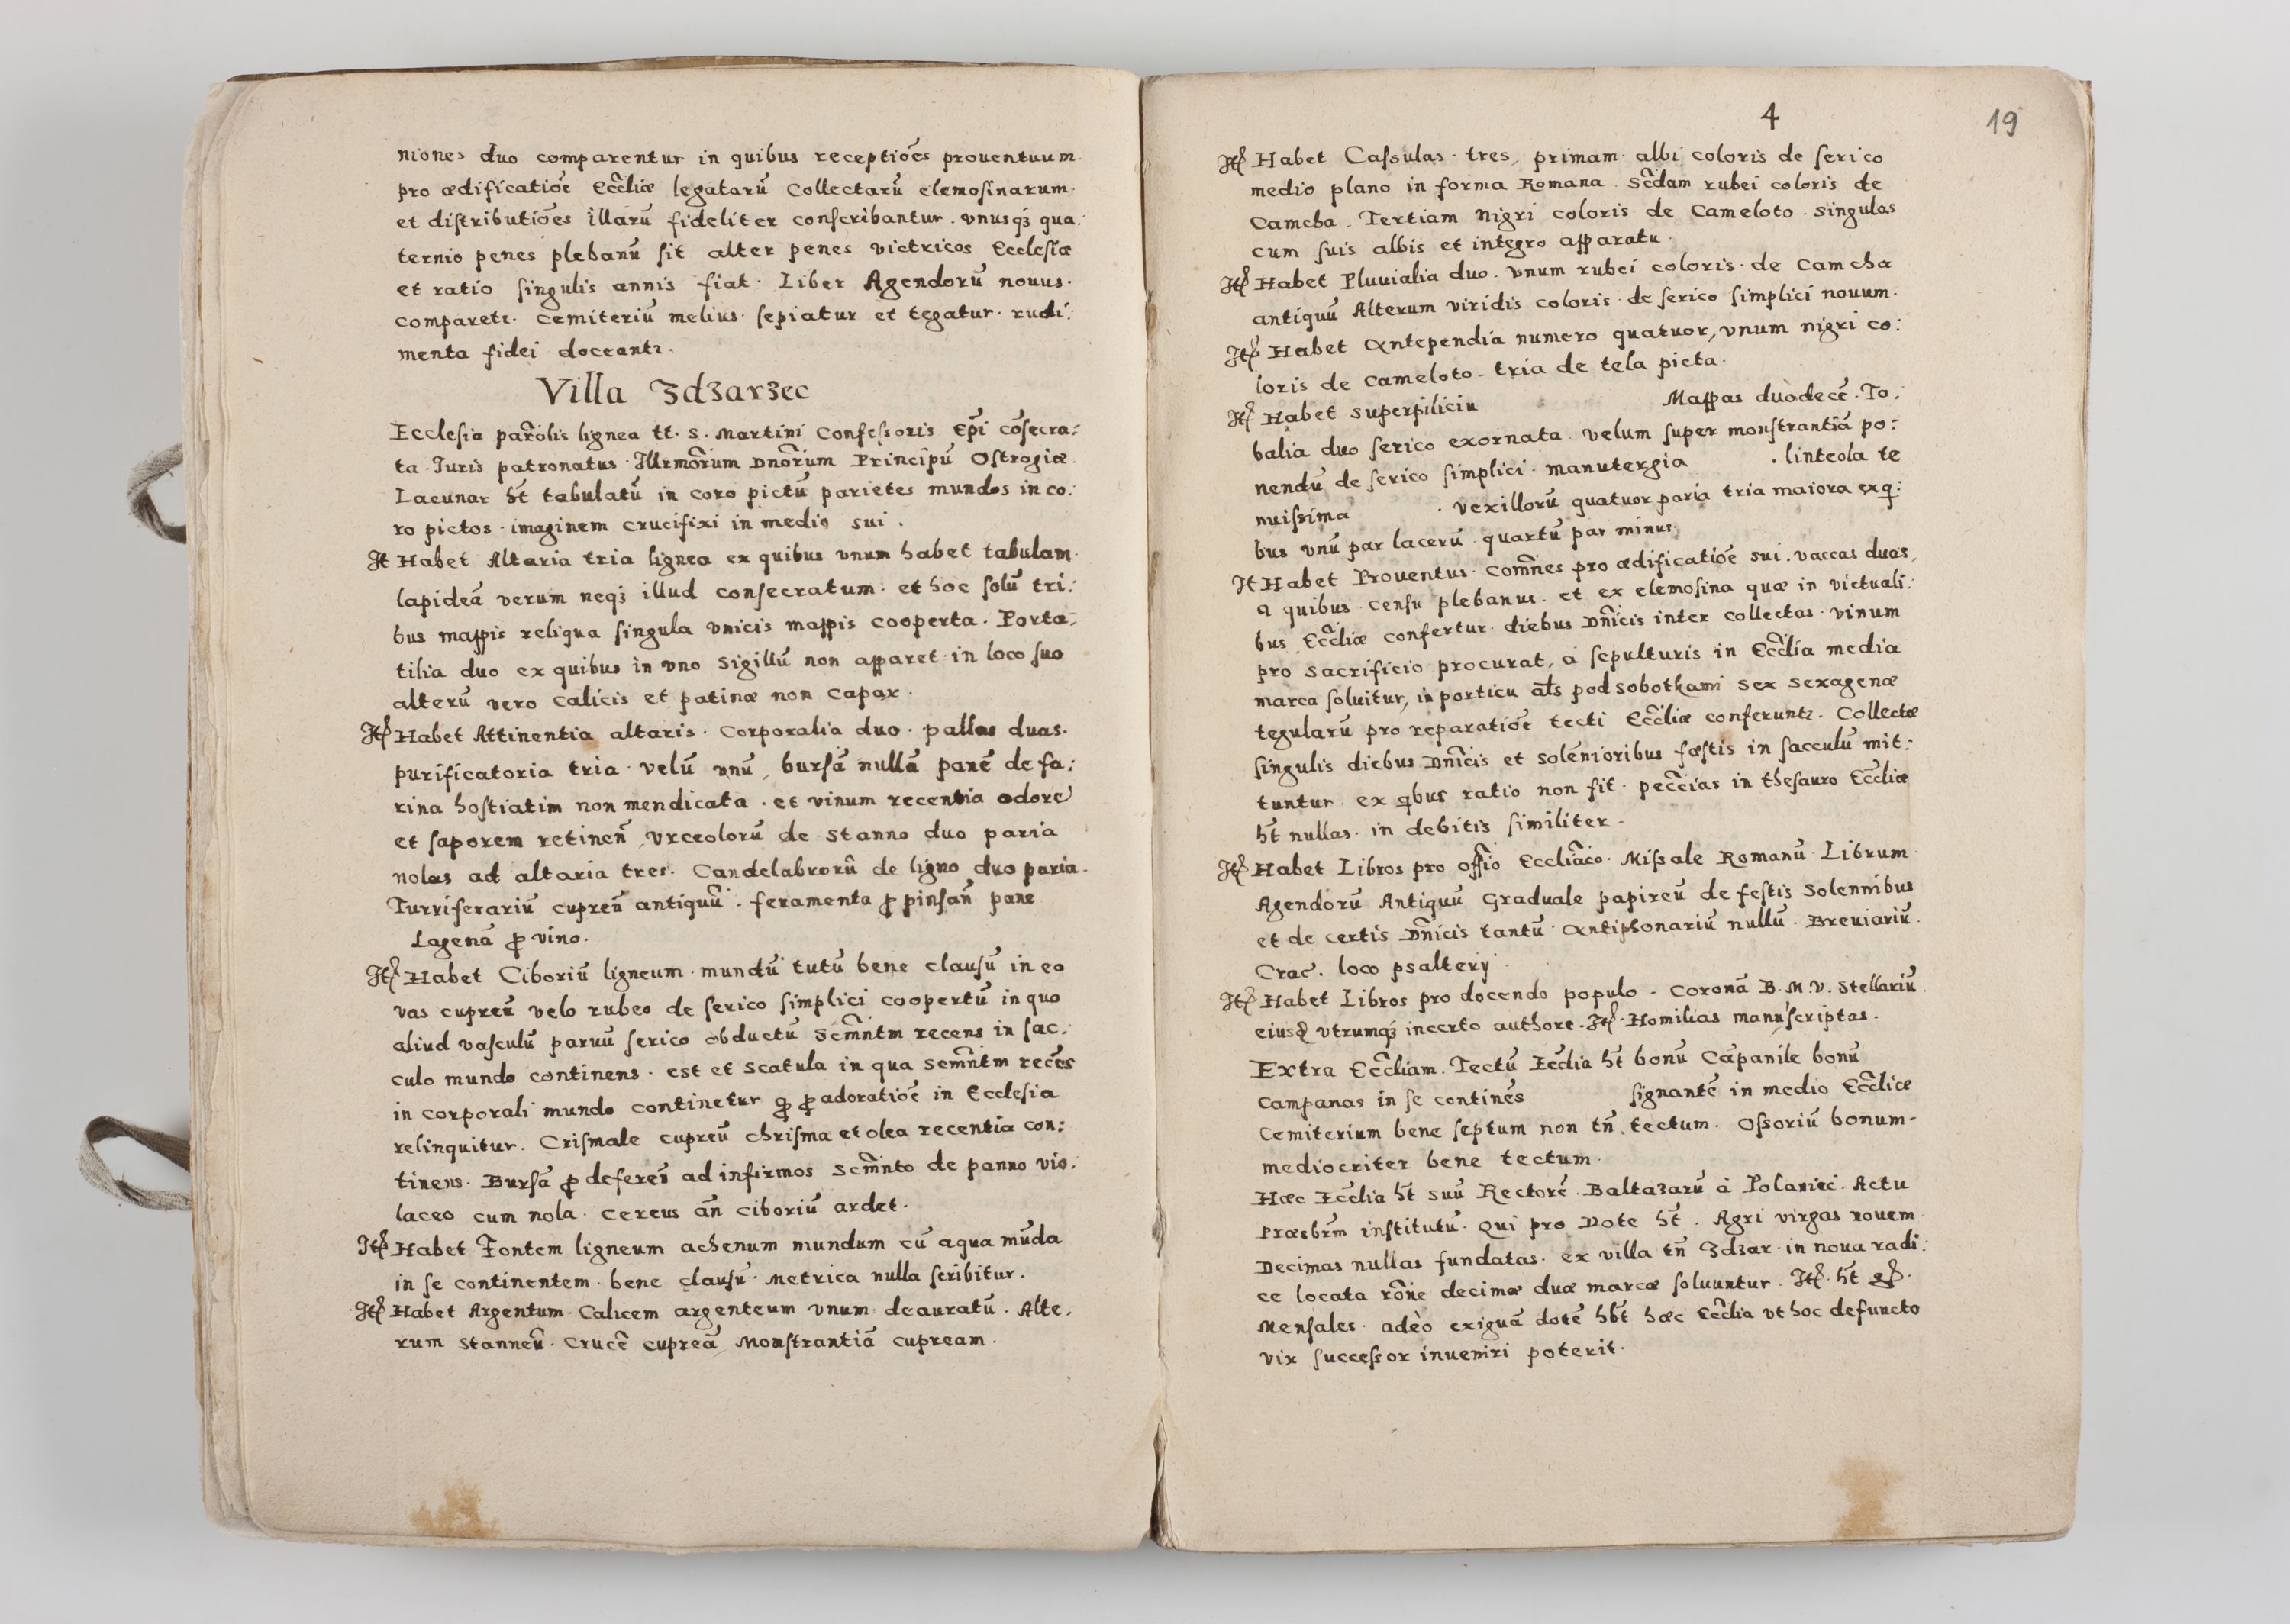 niones duo comparentur in quibus receptiões prouentuum.
pro ædificatiõe Eccãliæ legatarũ Collectarũ elemosinarum.
et distributiões illarũ fideliter conscribantur. vnusqꝫ qua:
ternio penes plebanũ sit alter penes victricos Ecclesiæ
et ratio singulis annis fiat. Liber Agendorũ nouus.
comparetr. Cemiteriũ melius sepiatur et tegatur. rudi:
menta fidei doceantr.
Villa Zdzarzec
Ecclesia parõlis lignea tt. S. Martini Confessoris Epĩ cõsecra:
ta. Iuris patronatus Illrmõrum Dnõrum Principũ Ostrogiæ.
Lacunar ht̃ tabulatũ in coro pictũ parietes mundos in co:
ro pictos. imaginem crucifixi in medio sui.
It Habet Altaria tria lignea ex quibus vnum habet tabulam.
lapideã verum neqꝫ illud consecratum. et hoc solũ tri:
bus mappis reliqua singula vnicis mappis cooperta. Porta:
tilia duo ex quibus in vno Sigillũ non apparet in loco suo
alterũ vero Calicis et patinæ non capax.
Itẽ Habet Attinentia altaris. Corporalia duo. pallas duas.
purificatoria tria. velũ vnũ, bursã nullã panẽ de fa:
rina hostiatim non mendicata. et vinum recentia odorẽ
et saporem retineñ, Vrceolorũ de Stanno duo paria
nolas ad altaria tres. Candelabrorũ de ligno duo paria.
Turriferariũ cupreũ antiquũ. feramenta ꝑ pinsañ pane
Lagenã ꝑ vino.
Itẽ Habet Ciboriũ ligneum. mundũ tutũ bene clausũ in eo
vas cupreũ velo rubeo de serico simplici coopertũ in quo
aliud vasculũ paruũ serico obductũ Scm̃ntm recens in sac:
culo mundo continens. est et Scatula in qua Sem̃ntm recẽs
in corporali mundo continetur q̃ ꝑ adoratiõe in Ecclesia
relinquitur. Crismale cupreũ chrisma et olea recentia con:
tinens. Bursã ꝑ defereñ ad infirmos Scm̃nto de panno vio:
laceo cum nola. cereus añ ciboriũ ardet.
Itẽ Habet Fontem ligneum achenum mundum cũ aqua mũda
in se continentem. bene clausũ. Metrica nulla scribitur.
Itẽ Habet Argentum. Calicem argenteum vnum deauratũ. Alte:
rum Stanneũ. Crucẽ cupreã, Monstrantiã cupream.
4
19
Itẽ Habet Cassulas tres, primam albi coloris de serico
medio plano in forma Romana. Scd̃am rubei coloris de
Camcha. Tertiam Nigri coloris de Cameloto. Singulas
cum suis albis et integro apparatu.
Itẽ Habet Pluuialia duo. vnum rubei coloris de Camcha
antiquũ Alterum viridis coloris de serico simplici nouum.
Itẽ Habet Antependia numero quatuor, vnum nigri co:
loris de Cameloto. tria de tela picta.
Itẽ Habet Superpiliciu Mappas duodecẽ. To:
balia duo serico exornata. velum super monstrantiã po:
nendũ de serico simplici. manutergia . linteola te
nuissima . vexillorũ quatuor paria tria maiora ex q̃:
bus vnũ par lacerũ quartũ par minus.
It Habet Prouentus. Com̃nes pro ædificatiõe sui. vaccas duas,
a quibus censu plebanus. et ex elemosina quæ in victuali:
bus Eccl̃iæ confertur. diebus Dñicis inter collectas. vinum
pro sacrificio procurat, a sepulturis in Eccl̃ia media
marca soluitur, in porticu als̃ pod sobothami sex sexagenæ
tegularũ pro reparatiõe tecti Eccl̃iæ conferuntr. Collectæ
singulis diebus Dñicis et solẽnioribus fæstis in sacculũ mit:
tuntur. ex q̃bus ratio non fit. pecc̃ias in thesauro Eccl̃iæ
ht̃ nullas. in debitis similiter.
Itẽ Habet Libros pro offĩo Eccl̃iãco. Missale Romanũ. Librum
Agendorũ Antiquũ Graduale papireũ de festis Solennibus
et de certis Dñicis tantũ. Antiphonariũ nullũ. Breuiariũ.
Crac̃. loco psaltery.
Itẽ Habet Libros pro docendo populo. Coronã B. M. V. Stellariũ.
eiusd̃ vtrumqꝫ incerto authore. Itẽ Homilias manuscriptas.
Extra Eccl̃iam. Tectũ Eccl̃ia ht̃ bonũ Cãpanile bonũ
Campanas in se continẽs signantẽ in medio Eccl̃iæ
Cemiterium bene septum non tñ tectum. Ossoriũ bonum.
mediocriter bene tectum.
Hæc Eccl̃ia ht̃ suũ Rectorẽ. Baltazarũ à Polaniec. Actu
Præsbr̃m institutũ. Qui pro Dote ht̃. Agri virgas nouem
Decimas nullas fundatas. ex villa tñ Zdzar in noua radi:
ce locata rõne decimæ duæ marcæ soluuntur. Itẽ. ht̃
Mensales. adeò exiguã dotẽ hb̃t hæc Eccl̃ia vt hoc defuncto
vix successor inueniri poterit.